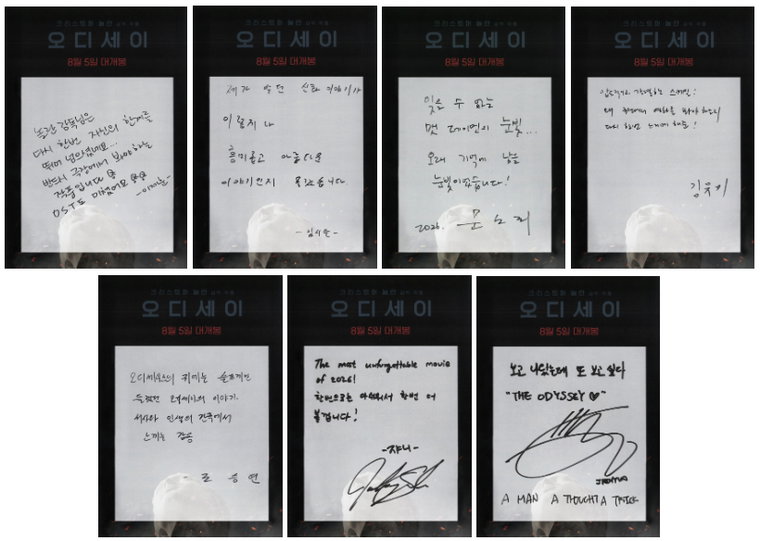 크리스토퍼 놀란 감독 작품
오디세이
8월 5일 대개봉
놀란 감독님은
다시 한번 자신의 한계를
뛰어 넘으셨네요...
반드시 극장에서 봐야하는
작품입니다
OST도 미쳤어요
-이제훈-
크리스토퍼 놀란 감독 작품
오디세이
8월 5일 대개봉
제가 알던 신화 이야기가
이렇게나
흥미롭고 아름다운
이야기인지 몰랐습니다.
-임시완-
크리스토퍼 놀란 감독 작품
오디세이
8월 5일 대개봉
잊을 수 없는
맷 데이먼의 눈빛...
오래 기억에 남을
눈빛이었습니다!
2026. 문소리
크리스토퍼 놀란 감독 작품
오디세이
8월 5일 대개봉
압도적이고
스케일!
왜 영화를 봐야 하는지
다시 한번 느끼게 해준!
크리스토퍼 놀란 감독 작품
오디세이
8월 5일 대개봉
오디세우스의 귀에는 슬프게만
들렸던 오디세이의 이야기.
서사와 인생의 간극에서
느끼는 감동
- 조승연
크리스토퍼 놀란 감독 작품
오디세이
8월 5일 대개봉
The most unforgettable movie
of 2026!
한번으로는 아쉬워서 한번 더
볼겁니다!
-쟈니-
크리스토퍼 놀란 감독 작품
오디세이
8월 5일 대개봉
보고 나왔는데 또 보고 싶다
"THE ODYSSEY ♡"
A MAN A THOUGHT A TRICK